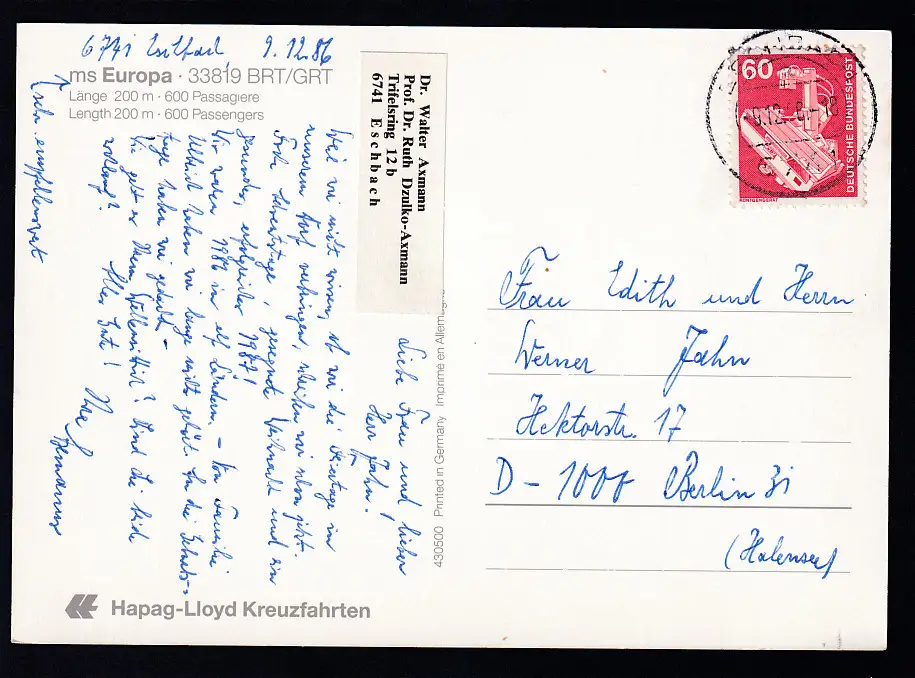 6741 Eschbach, 9.12.86
ms Europa · 33819 BRT/GRT
Länge 200 m · 600 Passagiere
Length 200 m · 600 Passengers
Dr. Walter Axmann
Prof. Dr. Ruth Dzulko-Axmann
Trifelsring 12 b
6741 Eschbach
Liebe Frau und lieber
Herr Jahn!
Weil wir nicht wissen, ob wir die Feiertage in
unserem Dorf verbringen, schreiben wir schon jetzt.
Frohe Adventstage, gesegnete Weihnacht und ein
gesundes, erfolgreiches 1987!
Wir waren 1986 in elf Ländern. – Von Familie
haben wir lange nichts gehört. An die
tage haben wir gedacht.
Wie geht es Ihrem Wellensittich? Sind Sie beide
wohlauf? Alles Gute! Ihre
Axmanns
sehr empfehlenswert
430500 Printed in Germany Imprimé en Allemagne
Hapag-Lloyd Kreuzfahrten
60
DEUTSCHE BUNDESPOST
RÖNTGENGERÄT
Frau Edith und Herrn
Werner Jahn
Hektorstr. 17
D - 1000 Berlin 31
(Halensee)